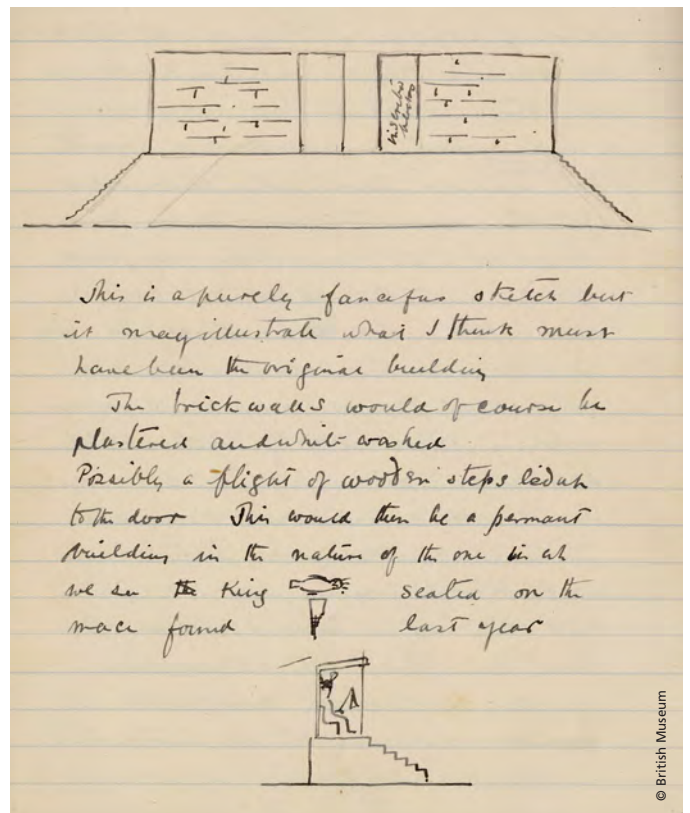 This is a purely fanciful sketch but
it may illustrate what I think must
have been the original building
The brick walls would of course be
plastered and white washed
Possibly a flight of wooden steps led up
to the door This would then be a permant
building in the nature of the one in wh
we see the King seated on the
mace found last year
© British Museum